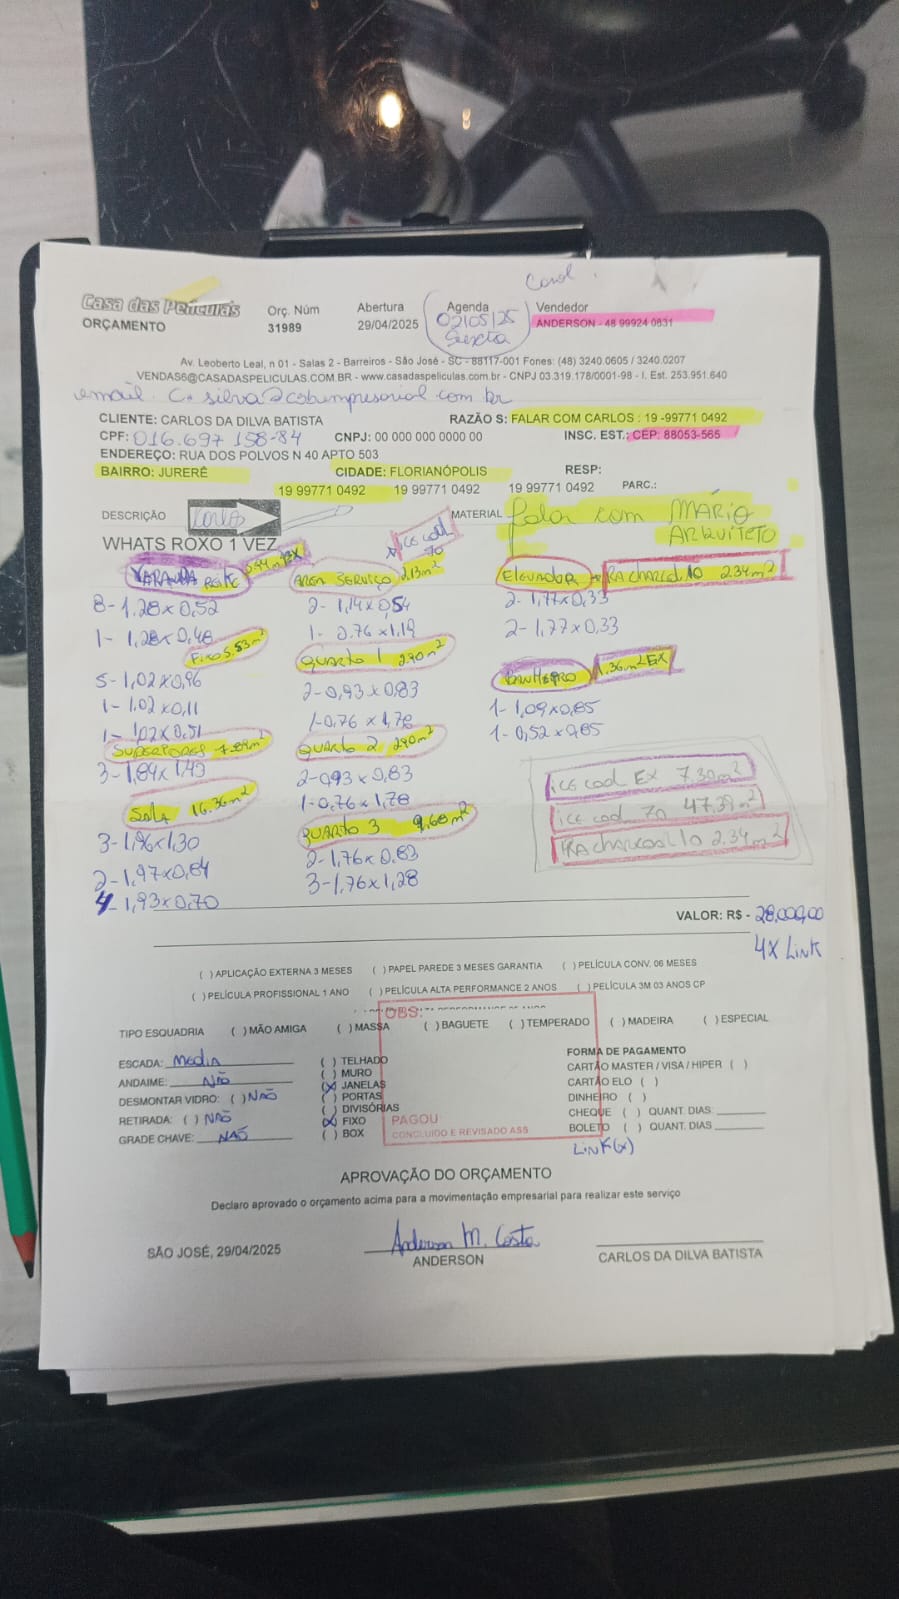 Casa das Películas
ORÇAMENTO
Orç. Núm
31989
Abertura
29/04/2025
Agenda
02/05/25
Sexta
Vendedor
ANDERSON - 48 99924 0831
Av. Leoberto Leal, n 01 - Salas 2 - Barreiros - São José - SC - 88117-001 Fones: (48) 3240.0605 / 3240.0207
VENDAS6@CASADASPELICULAS.COM.BR - www.casadaspeliculas.com.br - CNPJ 03.319.178/0001-98 - I. Est. 253.951.640
email. C.silva@cobempresarial.com.br
CLIENTE: CARLOS DA DILVA BATISTA
RAZÃO S: FALAR COM CARLOS : 19 -99771 0492
CPF: 016.697 158-84 CNPJ: 00 000 000 0000 00
INSC. EST.: CEP: 88053-565
ENDEREÇO: RUA DOS POLVOS N 40 APTO 503
BAIRRO: JURERÊ CIDADE: FLORIANÓPOLIS RESP:
19 99771 0492 19 99771 0492 19 99771 0492 PARC.:
DESCRIÇÃO
MATERIAL falar com MÁRIO
ARQUITETO
WHATS ROXO 1 VEZ
ICE cool
70
VARANDA
8-1.28x0,52
1-1,28x0,48
Fixo 5.53m²
5-1,02x0,96
1-1,02x0,11
1-1,02x0,51
3-1,84x1,43
Sala 16.36m²
3-1,96x1,30
2-1,97x0,84
4-1,93x0,70
AREA SERVIÇO 2,13m²
2-1,14x0,54
1-0,76x1,19
QUARTO 1 2.90m²
2-0,93x0,83
1-0,76x1,78
QUARTO 2 2.90m²
2-0,93x0,83
1-0,76x1,78
QUARTO 3 9,68m²
2-1,76x0,83
3-1,76x1,28
ELEVADOR RA charcol 10 2.34m²
2-1,77x0,33
2-1,77x0,33
BANHEIRO 1.36m² EX
1-1,09x0,85
1-0,52x0,85
ICE cool EX 7.30m²
ICE cool 70 47,39m²
RA charcoal 10 2.34m²
VALOR: R$ - 28.000,00
4X LINK
( ) APLICAÇÃO EXTERNA 3 MESES ( ) PAPEL PAREDE 3 MESES GARANTIA ( ) PELÍCULA CONV. 06 MESES
( ) PELÍCULA PROFISSIONAL 1 ANO ( ) PELÍCULA ALTA PERFORMANCE 2 ANOS ( ) PELÍCULA 3M 03 ANOS CP
OBS:
TIPO ESQUADRIA ( ) MÃO AMIGA ( ) MASSA ( ) BAGUETE ( ) TEMPERADO ( ) MADEIRA ( ) ESPECIAL
ESCADA: Media
ANDAIME: NÃO
DESMONTAR VIDRO: ( ) NÃO
RETIRADA: ( ) NÃO
GRADE CHAVE: NÃO
( ) TELHADO
( ) MURO
(X) JANELAS
( ) PORTAS
( ) DIVISÓRIAS
(X) FIXO
( ) BOX
PAGOU
CONCLUIDO E REVISADO ASS
FORMA DE PAGAMENTO
CARTÃO MASTER / VISA / HIPER ( )
CARTÃO ELO ( )
DINHEIRO ( )
CHEQUE ( ) QUANT. DIAS
BOLETO ( ) QUANT. DIAS
LINK(x)
APROVAÇÃO DO ORÇAMENTO
Declaro aprovado o orçamento acima para a movimentação empresarial para realizar este serviço
SÃO JOSÉ, 29/04/2025
Anderson M. Costa
ANDERSON
CARLOS DA DILVA BATISTA